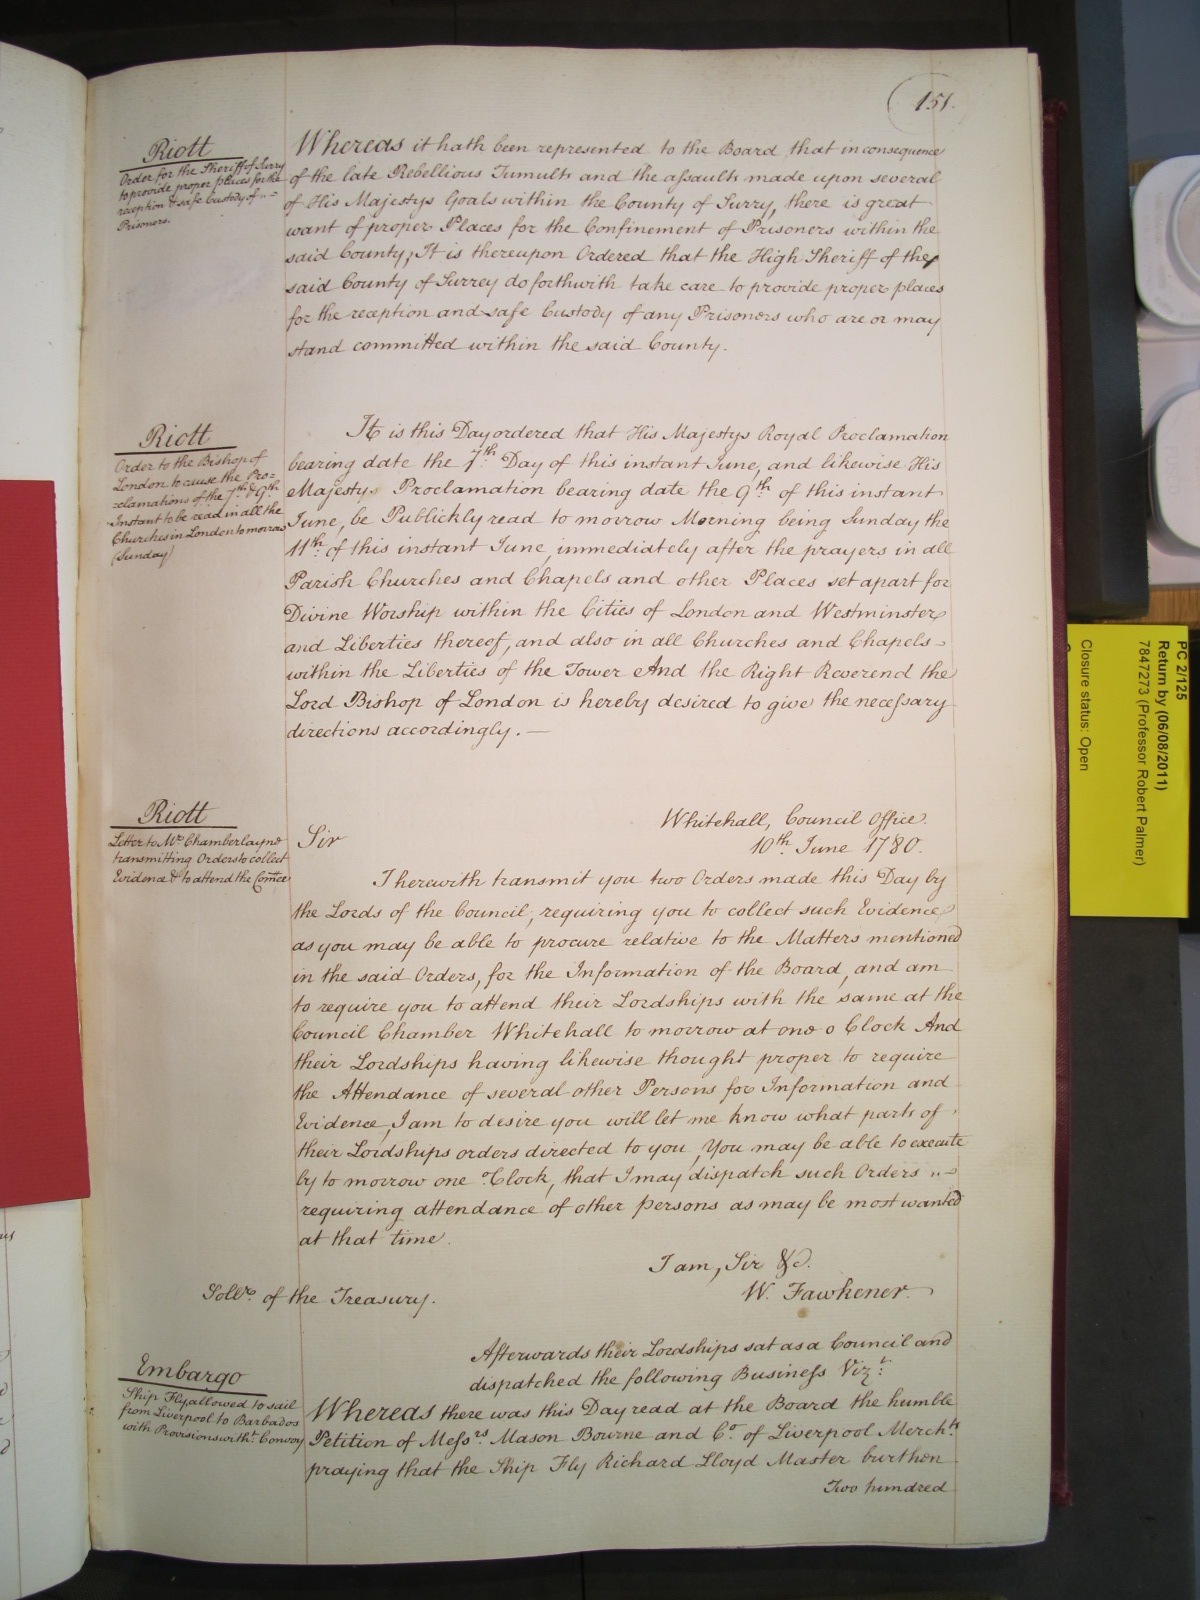 151.
Riott
Order for the Sheriff of Surry
to provide proper places for the
reception & safe Custody of
Prisoners.
Whereas it hath been represented to the Board that in consequence
of the late Rebellious Tumults and the assaults made upon several
of His Majestys Goals within the County of Surry, there is great
want of proper Places for the Confinement of Prisoners within the
said County; It is thereupon Ordered that the High Sheriff of the
said County of Surrey do forthwith take care to provide proper places
for the reception and safe Custody of any Prisoners who are or may
stand committed within the said County.
Riott
Order to the Bishop of
London to cause the Pro=
=clamations of the 7th. & 9th.
Instant to be read in all the
Churches in London to morrow
(Sunday)
It is this Day ordered that His Majestys Royal Proclamation
bearing date the 7th. Day of this instant June, and likewise His
Majestys Proclamation bearing date the 9th. of this instant
June, be Publickly read to morrow Morning being Sunday the
11th. of this instant June, immediately after the prayers in all
Parish Churches and Chapels and other Places set apart for
Divine Worship within the Cities of London and Westminster
and Liberties thereof, and also in all Churches and Chapels
within the Liberties of the Tower And the Right Reverend the
Lord Bishop of London is hereby desired to give the necessary
directions accordingly. —
Riott
Letter to Mr. Chamberlayne
transmitting Orders to collect
Evidence & to attend the Comtee
Whitehall, Council Office.
10th. June 1780.
Sir
I herewith transmit you two Orders made this Day by
the Lords of the Council, requiring you to collect such Evidence
as you may be able to procure relative to the Matters mentioned
in the said Orders, for the Information of the Board, and am
to require you to attend their Lordships with the same at the
Council Chamber Whitehall to morrow at one o Clock And
their Lordships having likewise thought proper to require
the Attendance of several other Persons for Information and
Evidence, I am to desire you will let me know what parts of
their Lordships orders directed to you, You may be able to execute
by to morrow one oClock, that I may dispatch such Orders
requiring attendance of other persons as may be most wanted
at that time.
I am, Sir &c.
W. Fawkener.
Sollr. of the Treasury.
Afterwards their Lordships sat as a Council and
dispatched the following Business Vizt.
Embargo
Ship Fly, allowed to sail
from Liverpool to Barbados
with Provisions witht. Convoy
Whereas there was this Day read at the Board the humble
Petition of Messrs. Mason Bourne and Co. of Liverpool Mercht.
praying that the Ship Fly Richard Lloyd Master burthen
Two hundred
PC 2/125
Return by (06/08/2011)
7847273 (Professor Robert Palmer)
Closure status: Open